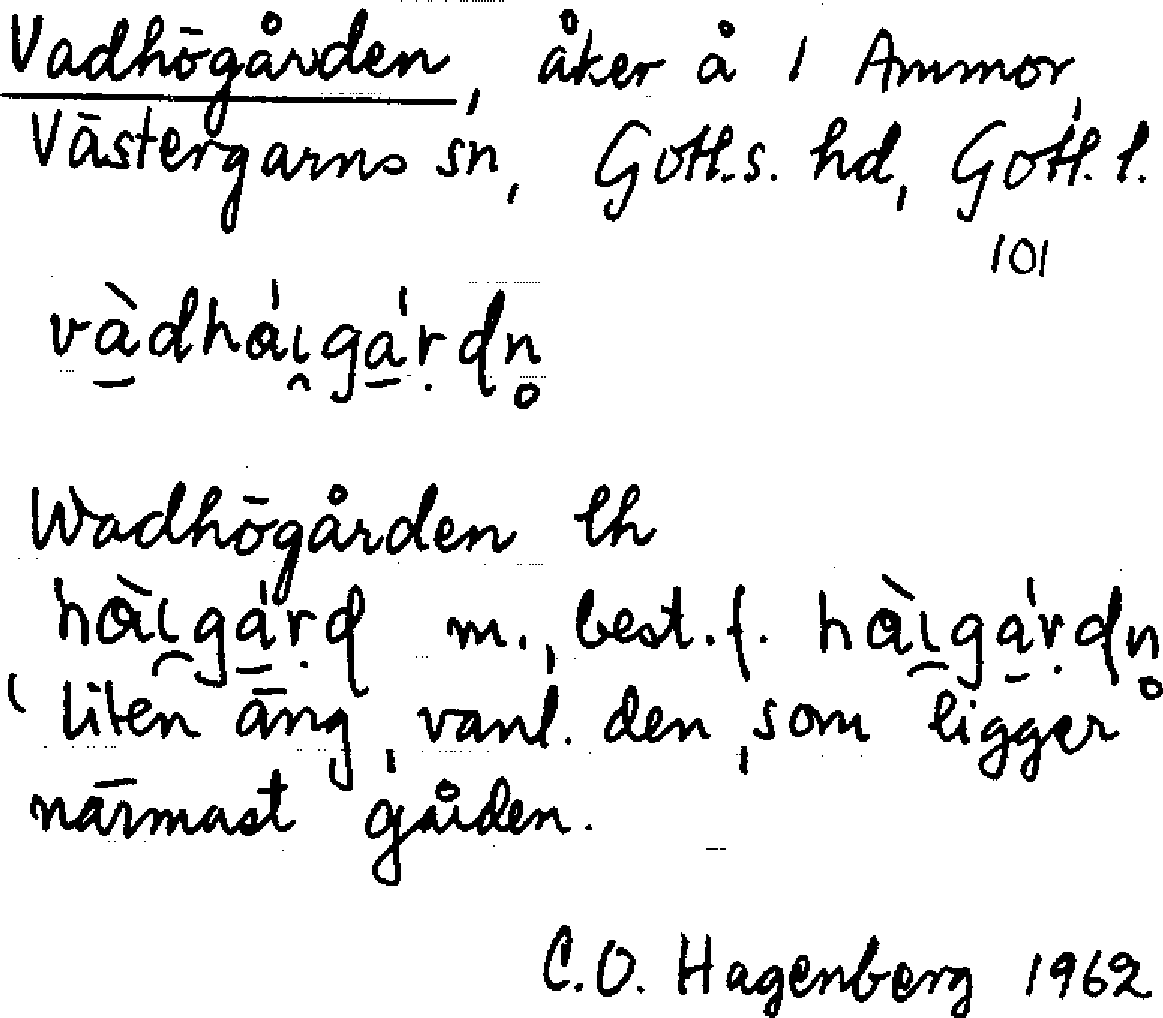 Vadhögården, åker å 1 Ammor,
Västergarns sn, Gotl.s. hd, Gotl. l.
101
vàdhái̯gá̱ṛdn̥
Wadhögården lh
hài̯gá̱ṛd m., best. f. hài̯gá̱ṛdn̥
‘liten äng, vanl. den, som ligger
närmast gården.
C.O. Hagenberg 1962